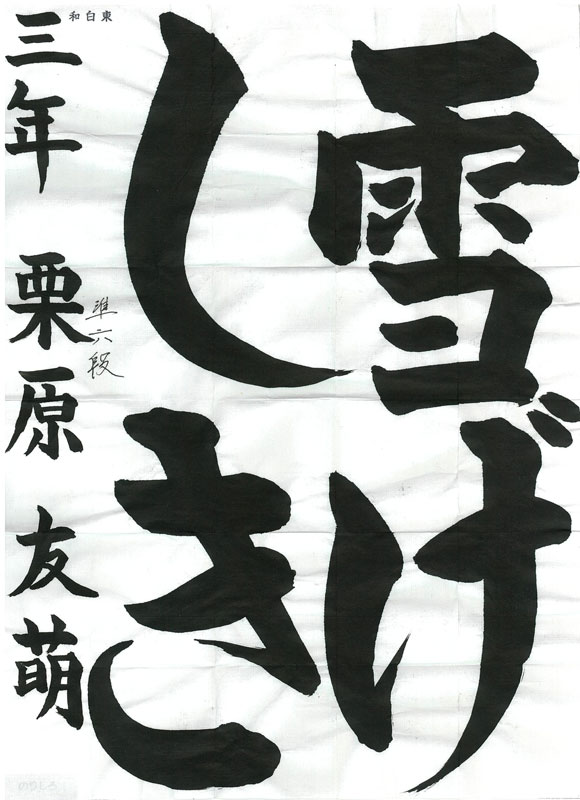 雪げ
しき
和白東
準六段
三年 栗原 友萌
のりしろ